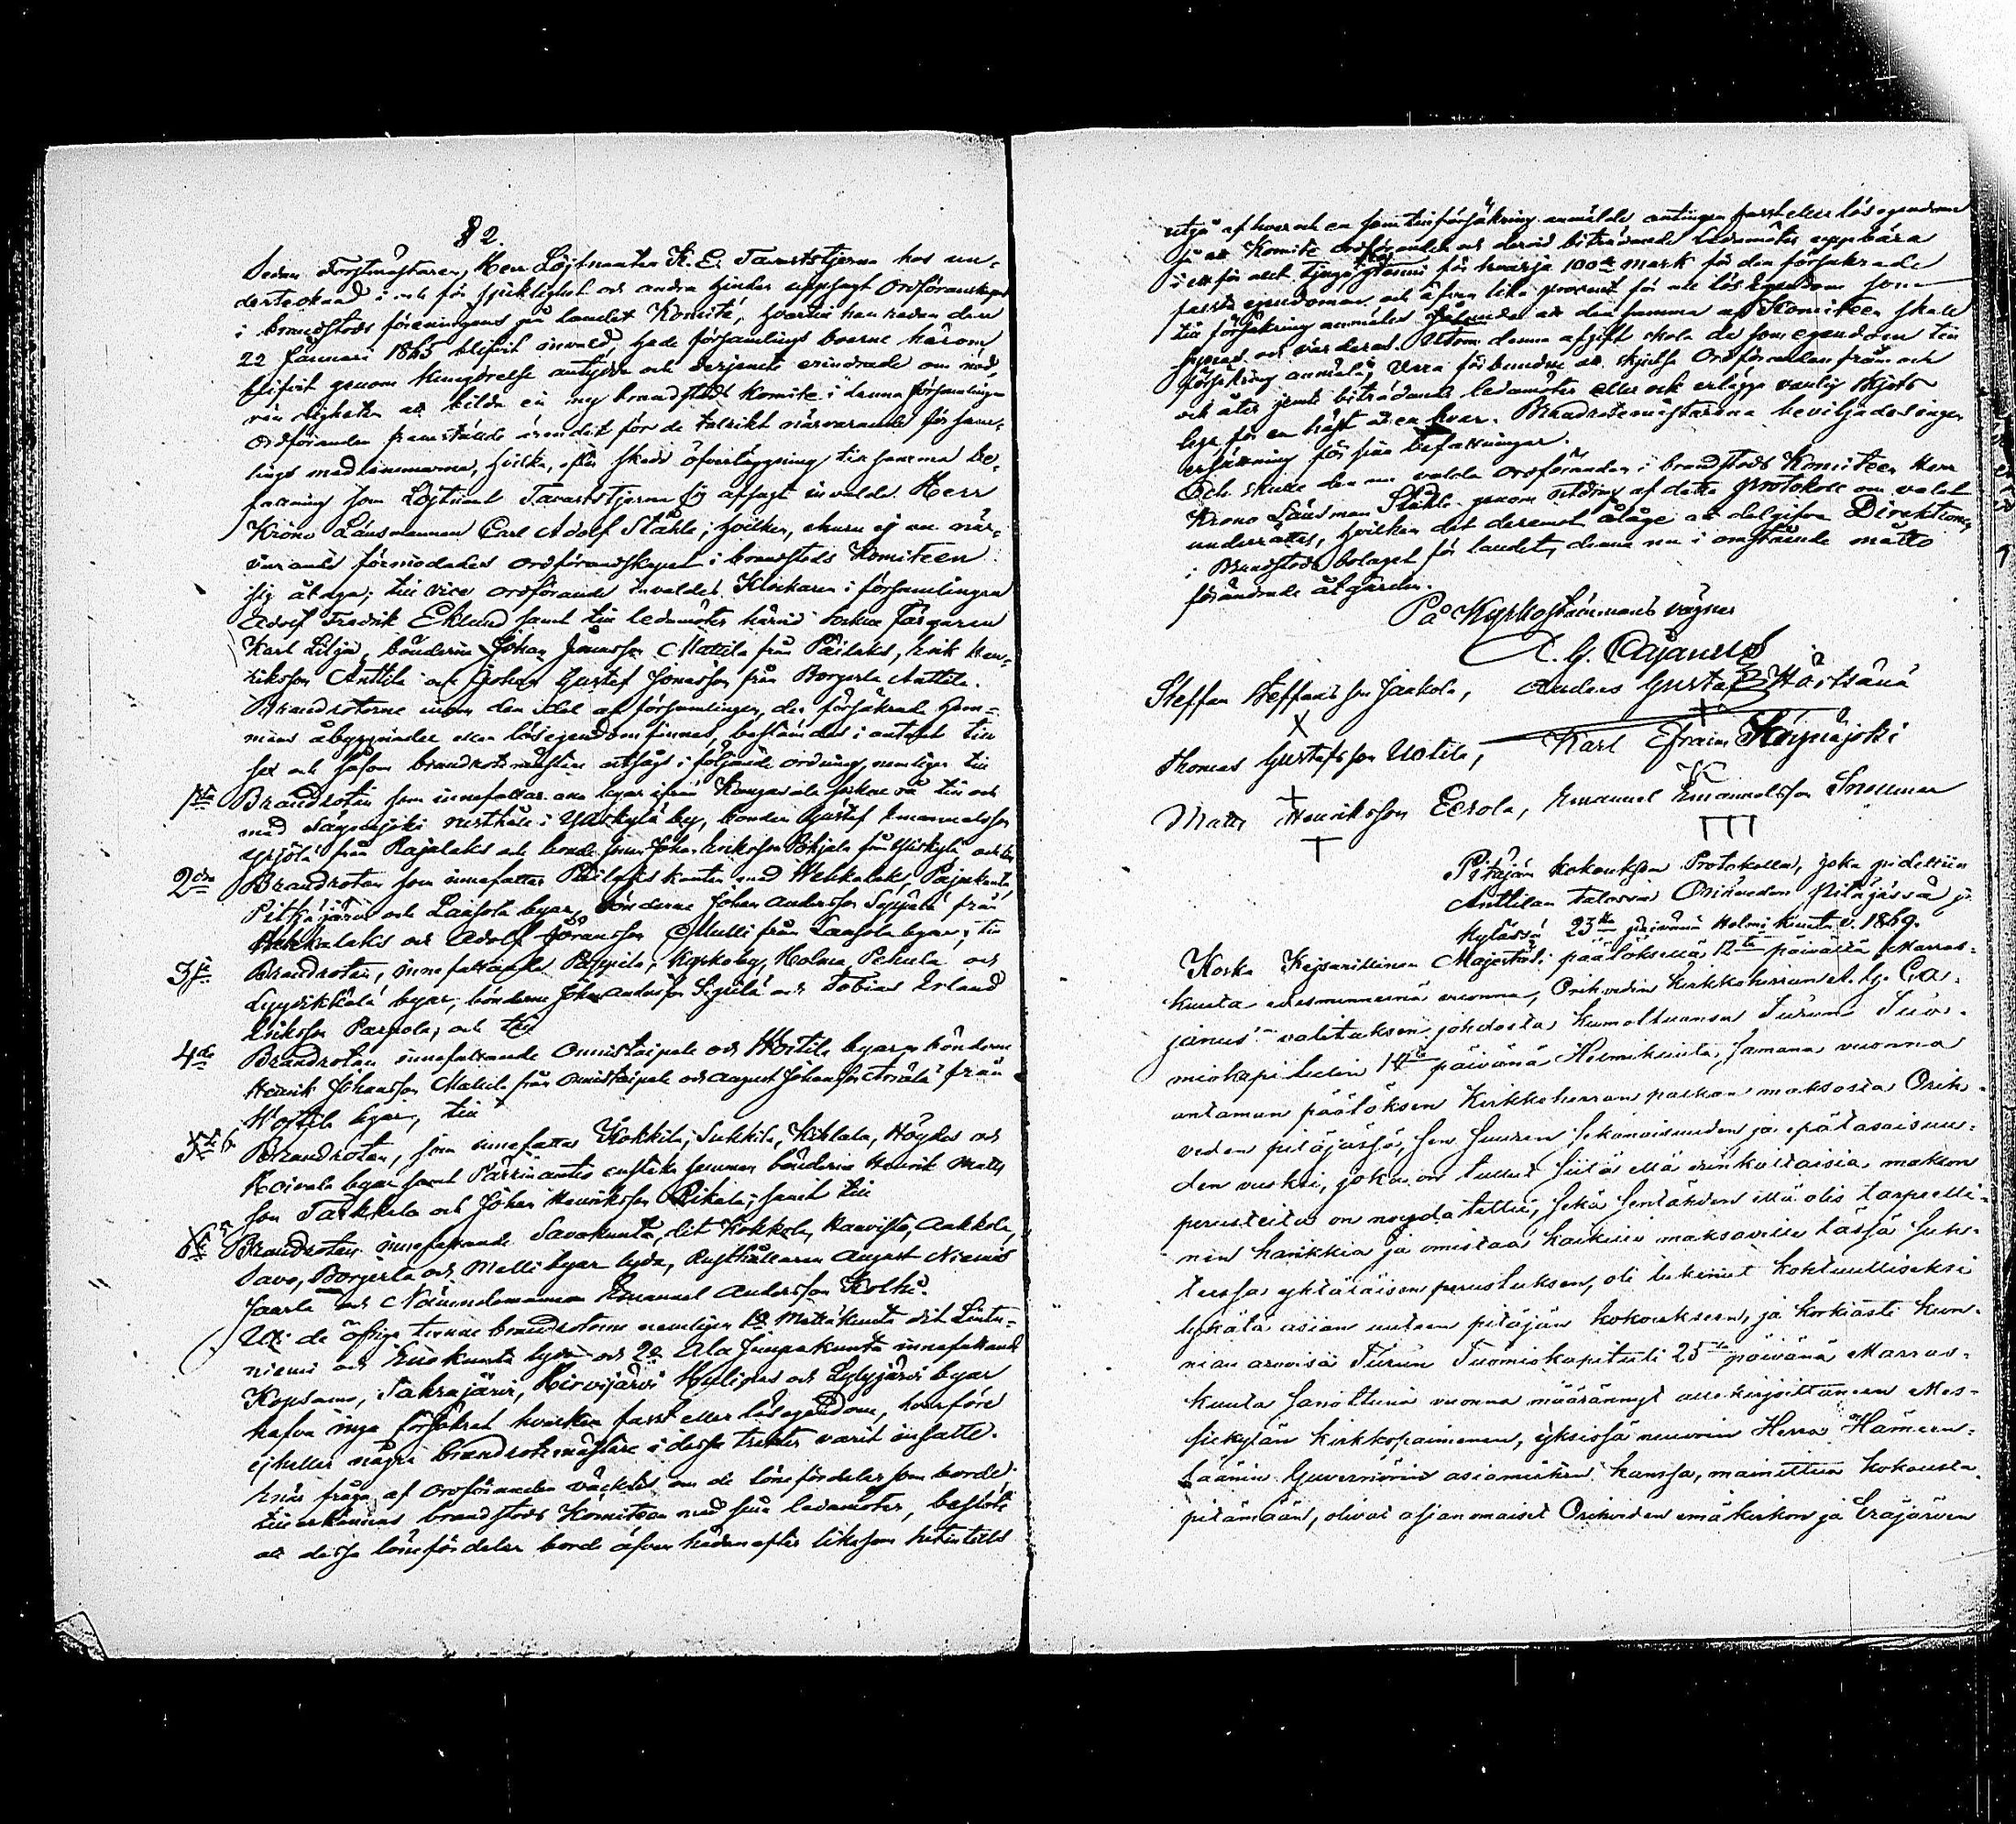 § 2.
Sedan Forstmästaren, Herr Löjtnanten K. E. Tavaststjerna hos un-
dertecknad i och för sjuklighet och andra hinder uppsagt Ordförandskapet
i brandstods föreningens på landet Komité, hvartill han redan den
22 Januari 1865 blifvit invald, hade församlings boerne härom
blifvit genom kungörelse antydde och derjemte erindrade om nöd-
vändigheten att bilda en ny brandstods komite i denna församling
Ordföranden framstälde ärendet för de talrikt närvarande försam-
lings medlemmarna, hvilka, efter skedd öfverläggning till samma be-
fattning som Löjtnant Tavaststjerna sig afsagt invalde Herr
Krono Länsmannen Carl Adolf Ståhle; hvilken, ehuru ej nu när-
varande förmodades ordförandskapet i brandstods Komiteen
sig åtaga; till vice ordförande invaldes Klockaren i församlingen
Adolf Fredrik Eklund samt till ledamöter härvid Socken Färgaren
Karl Lilja, bönderne Johan Jöransson Mattila från Päilaks, Erik Hen-
riksson Anttila och Johan Gustaf Jonasson från Borgerla Anttila.
Brandroterne inom den del af församlingen, der försäkrade hem-
mans åbyggnader eller lösegendom finnes, bestämdes i antalet till
sex och såsom brandrotemästare utsågs i följande ordning, nemligen till
1sta Brandrotan som innefattar alla byar ifrån Kangasala socken rå till och
med Säynäjoki rusthåll i Yliskylä by, bonden Gustaf Emanuelsson
Yrjölä från Rajalaks och bonde sonen Johan Eriksson Pohjala från Yliskylä och till
2dra Brandrotan som innefattar Päilaks kanten med Wehkalaks, Pajukanta,
Pitkäjärvi och Lansola byar, bönderne Johan Andersson Seppälä från
Wehkalaks och Adolf Göransson Mulli från Lansola byar; till
3dje Brandrotan, innefattande Pappila, Kyrkoby, Holma, Pehula och
Lyytikkälä byar, bönderne Johan Andersson Sipilä och Tobias Erland
Eriksson Parpola; och till
4de Brandrotan innefattande Onnistaipale och Wostila byar, bönderne
Henrik Johansson Mattila från Onnistaipale och August Johansson från
Wostila byar, till
5te Brandrotan, som innefattar Kokkila, Sukkila, Kiklala, Höydes och
Koivula byar samt enstaka hemman bönderne Henrik Matts
son Tarkkola och Johan Henriksson Rikala; samt till
6te Brandrotan innefattande Savokunta, dit Kokkola, Haavisto, Aakkola,
Savo, Borgerla och Melli byar lyda, Rusthållaren August Niemis
Jaarla och Nämndemannen Emanuel Andersson Kolhi.
Uti de öfriga tvenne brandroterne nemligen 1o Mattikunta dit Lintu-
niemi och Enokunta lyda och 2o Erla Juupakunta innefattande
Kopsamo, Sahrajärvi, Hirvijärvi Huliges och Lylyjärvi byar
hafva inga försäkrat hvarken fast eller lösegendom, hvarföre
ej heller några brandrotemästare i dessa trakter varit insatte.
Enär fråga af ordföranden väcktes om de löneförmåner som borde
tillerkännas brandstods Komiteen med sina ledamöter, beslöts
att dessa löneförmåner borde äfven hädanefter likasom hitintills
utgå af hvar och en som till försäkring anmälde antingen fast eller lös egendom
så att Komite ordföranden och dervid biträdande Ledamöter uppbära
i ett för allt tjugo penni för hvarje 100de mark för den försäkrade
fasta egendomen och äfven lika procent för all lös Egendom som
till försäkring anmäles och den samma af Komiteen skall
synas och värderas. Utom denna afgift skola de som egendom till
försäkring anmäla, vara förbundne att skjutsa Ordföranden fram och
och åter jemte biträdande ledamöter eller ock erlägga vanlig skjuts
lega för en häst åt en hvar. Brandrotemästarena beviljades ingen
ersättning för sina befattningar.
Och skulle den nu valda ordföranden i brandstods Komiteen Herr
Krono Länsman Ståhle genom utdrag af detta protokoll om valet
underrättas, hvilken det derjemte ålåge att delgifva Direktionen
i Brandstods bolaget för landet, denna nu i omstående måtto
förändrade åtgärden.
På Kyrkostämmans vägnar
A. G. Cajanus
Steffan Steffansson Jaakola, Anders Gustaf Härtsänä
Thomas Gustafsson Uotila, Karl Efraim Köynäjoki
Matts Henriksson Eerola, Emanuel Emanuelsson Snellman
Pitäjän kokouksen Protokolla, joka pidettiin
Anttilan talossa Oriveden pitäjässä ja
kylässä 23tta päivänä Helmikuuta v. 1869.
Koska Keisarillinen Majesteti päätöksellä 12ta päivältä Marras-
kuuta edesmenneenä vuonna, Oriveden kirkkoherran A. G. Ca-
janus'en valituksen johdosta kumottuansa Turun Tuo-
miokapitulin 14ta päivänä Helmikuuta samana vuonna
antaman päätöksen Kirkkoherran palkan maksosta Orih-
veden pitäjässä, sen suuren sekanaisuuden ja epätasaisuu-
den vuoksi, joka on tullut siitä että erinkaltaisia makson
perusteita on noudatettu, sekä sentähden että olis tarpeelli-
nen hankkia ja omistaa kaikille maksaville tässä suh-
teessa yhtäläisen perustuksen, oli tahtonut kohtuulliseksi
lykätä asian uuteen pitäjän kokoukseen, ja korkiasti kun-
nian arvoisa Turun Tuomiokapituli 25ta päivänä Marras-
kuuta sanottuna vuonna määrännyt allekirjoittaneen Mes-
sukylän kirkkopaimenen, yksissä neuvoin Herra Hämeen-
läänin Guvernörin asiamiehen kanssa, mainittua kokousta
pitämään, olivat asianomaiset Oriveden emäkirkon ja Eräjärven